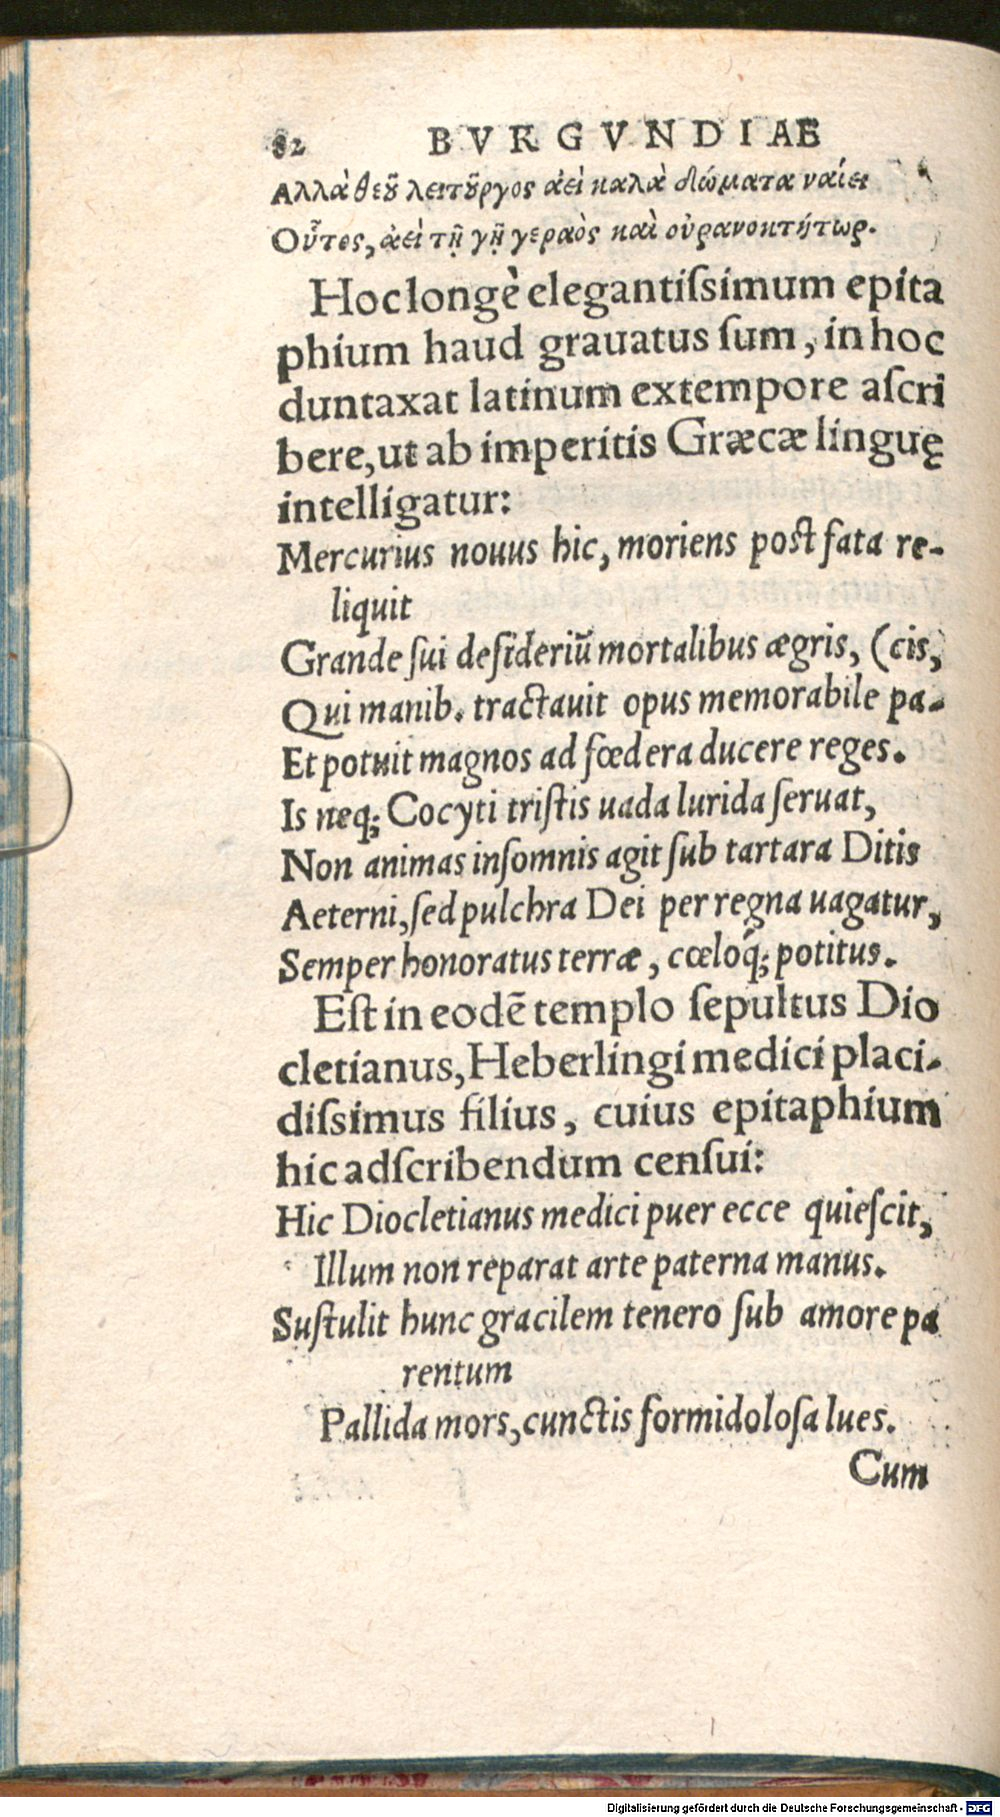 82 BVRGVNDIAE
Αλλὰ θεȣ͂ λειτȣ͂ργος ἀεὶ καλὰ δώματα ναίει
Οὗτος, ἀεὶ τῇ γῇ γεραὸς καὶ οὐρανοκτήτωρ.
Hoc longè elegantiſsimum epita
phium haud grauatus ſum, in hoc
duntaxat latinum extempore aſcri
bere, ut ab imperitis Græcæ linguę
intelligatur:
Mercurius nouus hic, moriens poſt fata re-
liquit
Grande ſui deſideriũ mortalibus ægris, (cis,
Qui manib. tractauit opus memorabile pa-
Et potuit magnos ad fœdera ducere reges.
Is neq; Cocyti triſtis uada lurida ſeruat,
Non animas inſomnis agit ſub tartara Ditis
Aeterni, ſed pulchra Dei per regna uagatur,
Semper honoratus terræ, cœloq́; potitus.
Eſt in eodẽ templo ſepultus Dio
cletianus, Heberlingi medici placi-
diſsimus filius, cuius epitaphium
hic adſcribendum cenſui:
Hic Diocletianus medici puer ecce quieſcit,
Illum non reparat arte paterna manus.
Suſtulit hunc gracilem tenero ſub amore pa
rentum
Pallida mors, cunctis formidoloſa lues.
Cum
Digitalisierung gefördert durch die Deutsche Forschungsgemeinschaft - DFG